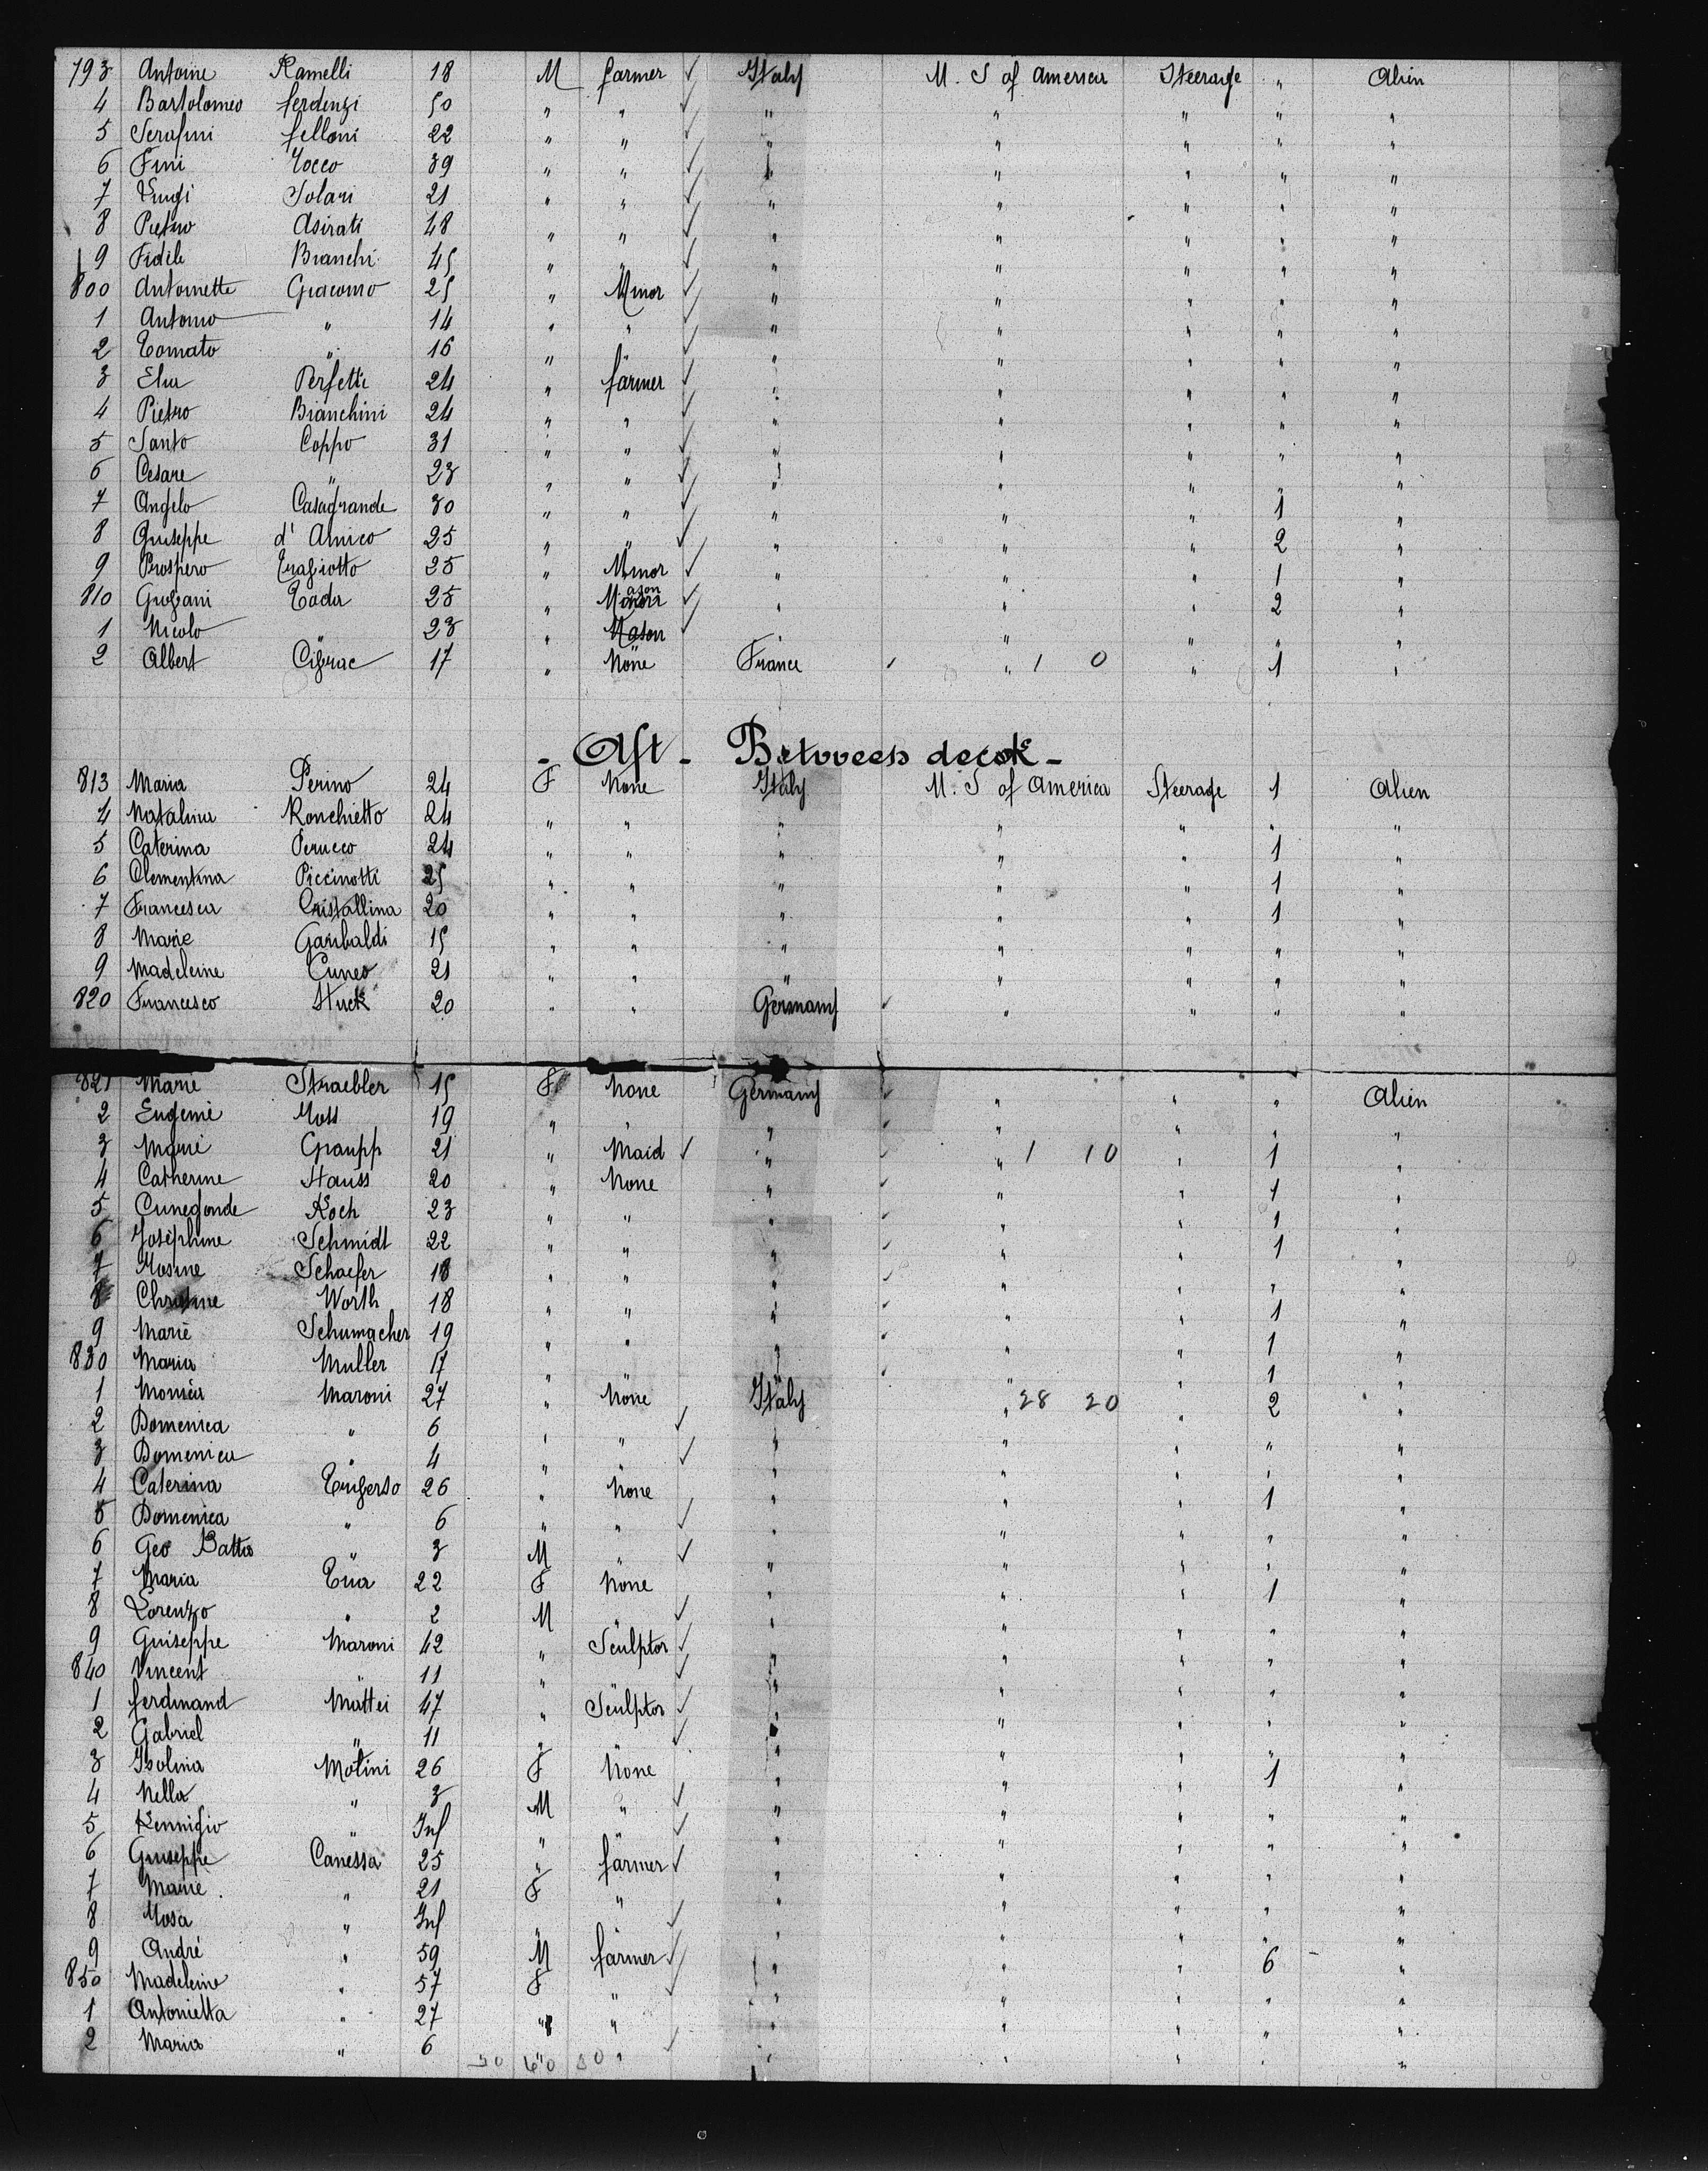 793 Antoine Ramelli 18 M farmer ✓ Italy U. S of America Steerage " Alien
4 Bartolomeo ferdenzi 50 " " ✓ " " " " "
5 Serafini felloni 22 " " ✓ " " " " "
6 Fini Rocco 39 " " ✓ " " " " "
7 Luigi Solari 21 " " ✓ " " " " "
8 Pietro Asirati 48 " " ✓ " " " " "
9 Fidele Bianchi 45 " " ✓ " " " " "
800 Antoinette Giacomo 25 " Minor ✓ " " " " "
1 Antonio " 14 " " ✓ " " " " "
2 Tomato " 16 " " ✓ " " " " "
3 Elia Perfetti 24 " farmer ✓ " " " " "
4 Pietro Bianchini 24 " " ✓ " " " " "
5 Santo Coppo 31 " " ✓ " " " " "
6 Cesare " 23 " " ✓ " " " " "
7 Angelo Casagrande 30 " " ✓ " " " 1 "
8 Guiseppe d' Amico 25 " " ✓ " " " 2 "
9 Prospero 25 " Minor ✓ " " " 1 "
810 Giovani Toda 25 " Mason ✓ " " " 2 "
1 Nicolo " 23 " Mason ✓ " " " " "
2 Albert 17 " None France " 1 0 " 1 "
- Aft - Betweees deck -
813 Maria Perino 24 F None Italy U. S of America Steerage 1 Alien
4 Natalina Ronchietto 24 " " " " " " "
5 Caterina Perucco 24 " " " " " 1 "
6 Clementina Piccinotti 25 " " " " " 1 "
7 Francesca Cristallina 20 " " " " " 1 "
8 Marie Garibaldi 15 " " " " " " "
9 Madeleine Cuneo 21 " " " " " " "
820 Francesco Stuck 20 " " Germany " " " "
821 Marie Straebler 15 F None Germany " " " Alien
2 Eugenie Moss 19 " " " " " " "
3 Marie Graupp 21 " Maid ✓ " " 1 10 " 1 "
4 Catherine Hauss 20 " None " " " 1 "
5 Cunegonde Koch 23 " " " " " 1 "
6 Joséphine Schmidt 22 " " " " " 1 "
7 Rosine Schaefer 18 " " " " " " "
8 Christine Worth 18 " " " " " 1 "
9 Marie Schumacher 19 " " " " " 1 "
830 Maria Muller 17 " " " " " 1 "
1 Monica Maroni 27 " None Italy " 28 20 " 2 "
2 Domenica " 6 " " ✓ " " " " "
3 Domenica " 4 " " ✓ " " " " "
4 Caterina 26 " None " " " 1 "
5 Domenica " 6 " " ✓ " " " " "
6 Geo Batta " 3 M " ✓ " " " " "
7 Maria 22 F None " " " 1 "
8 Lorenzo " 2 M ✓ " " " " "
9 Guiseppe Maroni 42 " Sculptor ✓ " " " " "
840 Vincent " 11 " ✓ " " " " "
1 ferdinand Mattei 47 " Sculptor ✓ " " " " "
2 Gabriel " 11 " ✓ " " " " "
3 Isolina Molini 26 F None " " " 1 "
4 Nella " 3 M " ✓ " " " " "
5 Remigio " Inf " ✓ " " " " "
6 Guiseppe Canessa 25 " farmer ✓ " " " " "
7 Marie " 21 F " " " " " "
8 Rosa " Inf " ✓ " " " " "
9 André " 59 M farmer ✓ " " " 6 "
850 Madeleine " 57 F " ✓ " " " " "
1 Antonietta " 27 " " " " " " "
2 Maria " 6 " " ✓ " " " " "